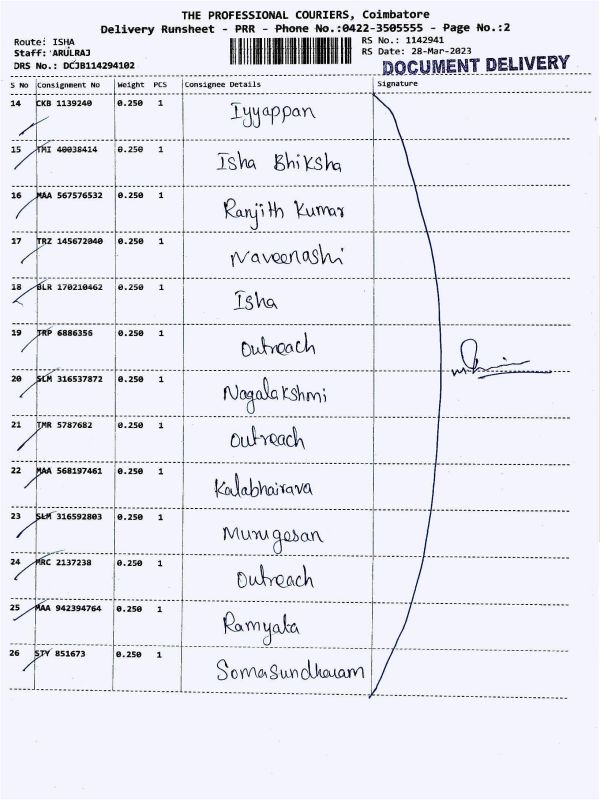 THE PROFESSIONAL COURIERS, Coimbatore
Delivery Runsheet - PRR - Phone No.:0422-3505555 - Page No.:2
Route: ISHA
Staff: ARULRAJ
DRS No.: DCJB114294102
RS No.: 1142941
RS Date: 28-Mar-2023
DOCUMENT DELIVERY
S No Consignment No Weight PCS Consignee Details Signature
14 CKB 1139240 0.250 1 Iyyappan
15 TMI 40038414 0.250 1 Isha Bhiksha
16 MAA 567576532 0.250 1 Ranjith Kumar
17 TRZ 145672040 0.250 1 Naveenashi
18 BLR 170210462 0.250 1 Isha
19 TRP 6886356 0.250 1 Outreach
20 SLM 316537872 0.250 1 Nagalakshmi
21 TMR 5787682 0.250 1 Outreach
22 MAA 568197461 0.250 1 Kalabhairava
23 SLM 316592803 0.250 1 Murugesan
24 MRC 2137238 0.250 1 Outreach
25 MAA 942394764 0.250 1 Ramyata
26 STY 851673 0.250 1 Somasundharam